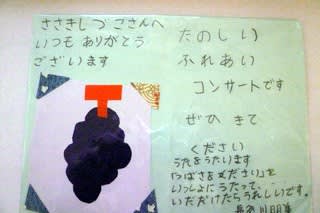 ささきしづこさんへ
いつも ありがとう
ございます
たのしい
ふれあい
コンサートです
ぜひ きて
ください
うたをうたいます
「つばさをください」を
いっしょにうたって、
いただけたらうれしいです。